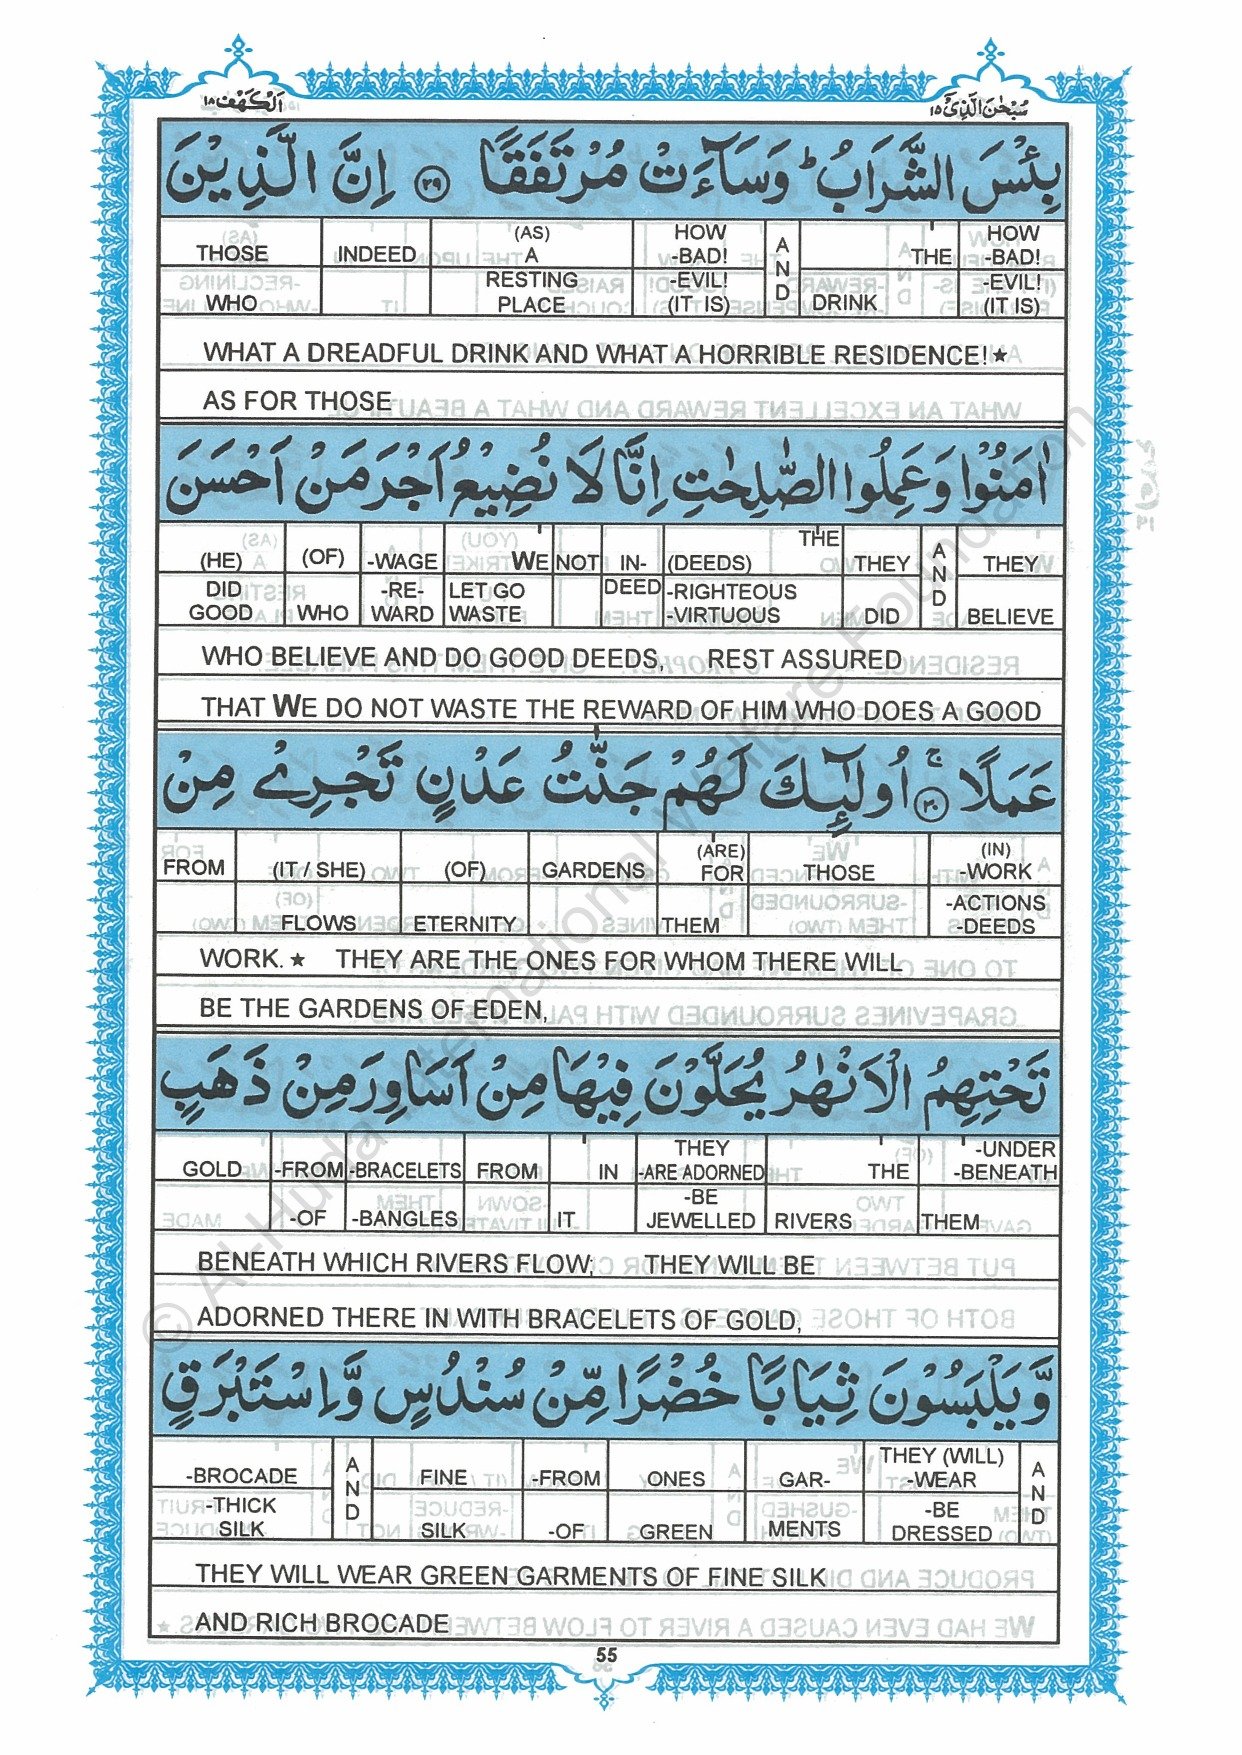 اَلْكَهْف ١٨
سُبْحٰنَ الَّذِیْ ١٥
بِئْسَ الشَّرَابُ ؕ وَسَآءَتْ مُرْتَفَقًا ﴿٢٩﴾ اِنَّ الَّذِيْنَ
THOSE INDEED (AS) A HOW -BAD! AND THE HOW -BAD!
WHO RESTING PLACE -EVIL! (IT IS) DRINK -EVIL! (IT IS)
WHAT A DREADFUL DRINK AND WHAT A HORRIBLE RESIDENCE!★
AS FOR THOSE
اٰمَنُوْا وَعَمِلُوا الصّٰلِحٰتِ اِنَّا لَا نُضِيْعُ اَجْرَ مَنْ اَحْسَنَ
(HE) (OF) -WAGE WE NOT IN- (DEEDS) THE THEY AND THEY
DID GOOD WHO -RE- WARD LET GO WASTE DEED -RIGHTEOUS -VIRTUOUS DID BELIEVE
WHO BELIEVE AND DO GOOD DEEDS, REST ASSURED
THAT WE DO NOT WASTE THE REWARD OF HIM WHO DOES A GOOD
عَمَلًا ۚ﴿٣٠﴾ اُولٰٓئِكَ لَهُمْ جَنّٰتُ عَدْنٍ تَجْرِيْ مِنْ
FROM (IT / SHE) (OF) GARDENS (ARE) FOR THOSE (IN) -WORK
FLOWS ETERNITY THEM -ACTIONS -DEEDS
WORK.★ THEY ARE THE ONES FOR WHOM THERE WILL
BE THE GARDENS OF EDEN,
تَحْتِهِمُ الْاَنْهٰرُ يُحَلَّوْنَ فِيْهَا مِنْ اَسَاوِرَ مِنْ ذَهَبٍ
GOLD -FROM -BRACELETS FROM IN THEY -ARE ADORNED THE -UNDER -BENEATH
-OF -BANGLES IT -BE JEWELLED RIVERS THEM
BENEATH WHICH RIVERS FLOW; THEY WILL BE
ADORNED THERE IN WITH BRACELETS OF GOLD,
وَّيَلْبَسُوْنَ ثِيَابًا خُضْرًا مِّنْ سُنْدُسٍ وَّاِسْتَبْرَقٍ
-BROCADE AND FINE -FROM ONES GAR- THEY (WILL) -WEAR AND
-THICK SILK SILK -OF GREEN MENTS -BE DRESSED
THEY WILL WEAR GREEN GARMENTS OF FINE SILK
AND RICH BROCADE
55
© Al-Huda International Welfare Foundation